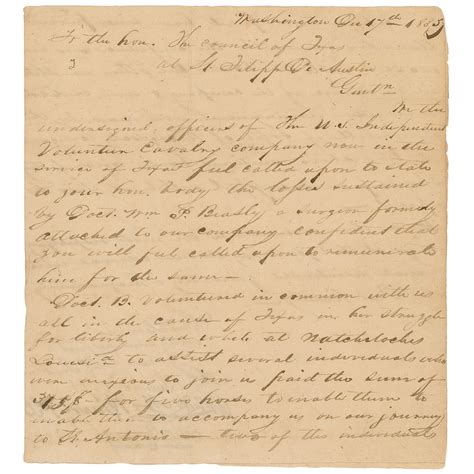 Washington Dec 17th 1835
To the hon. The council of Texas
3 at St. Filipp De Austin
Gentn
We the
undersigned officers of the U.S. Independent
Volunteer Cavalry company now in the
service of Texas feel called upon to state
to your hon. body the losses sustained
by Doct. Wm P. Beasly a surgeon formerly
attached to our company confident that
you will feel called upon to remunerate
him for the same —
Doct. B. Volunteered in common with us
all in the cause of Texas in her struggle
for liberty and while at Natchitoches
Louisia to assist several individuals who
were anxious to join us paid the sum of
for five horses to enable them to
enable them to accompany us on our journey
to St. Antonio — two of the individuals